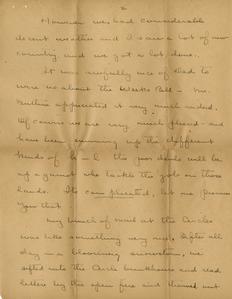 2
However we had considerable
decent weather and I saw a lot of new
country and we got a lot done.
It was awfully nice of Dad to
wire us about the Weeks Bill - Mr.
appreciated it very much indeed.
Of course we are very much pleased - and
have been summing up the different
kinds of h - l the poor devils will be
up against who tackle the jobs on those
lands. It's complicated, let me promise
you that
My bunch of mail at the Circle
was like something very nice. After all
day in a blooming snowstorm, we
sifted into the Circle bunkhouse and read
letters by the open fire and thawed out